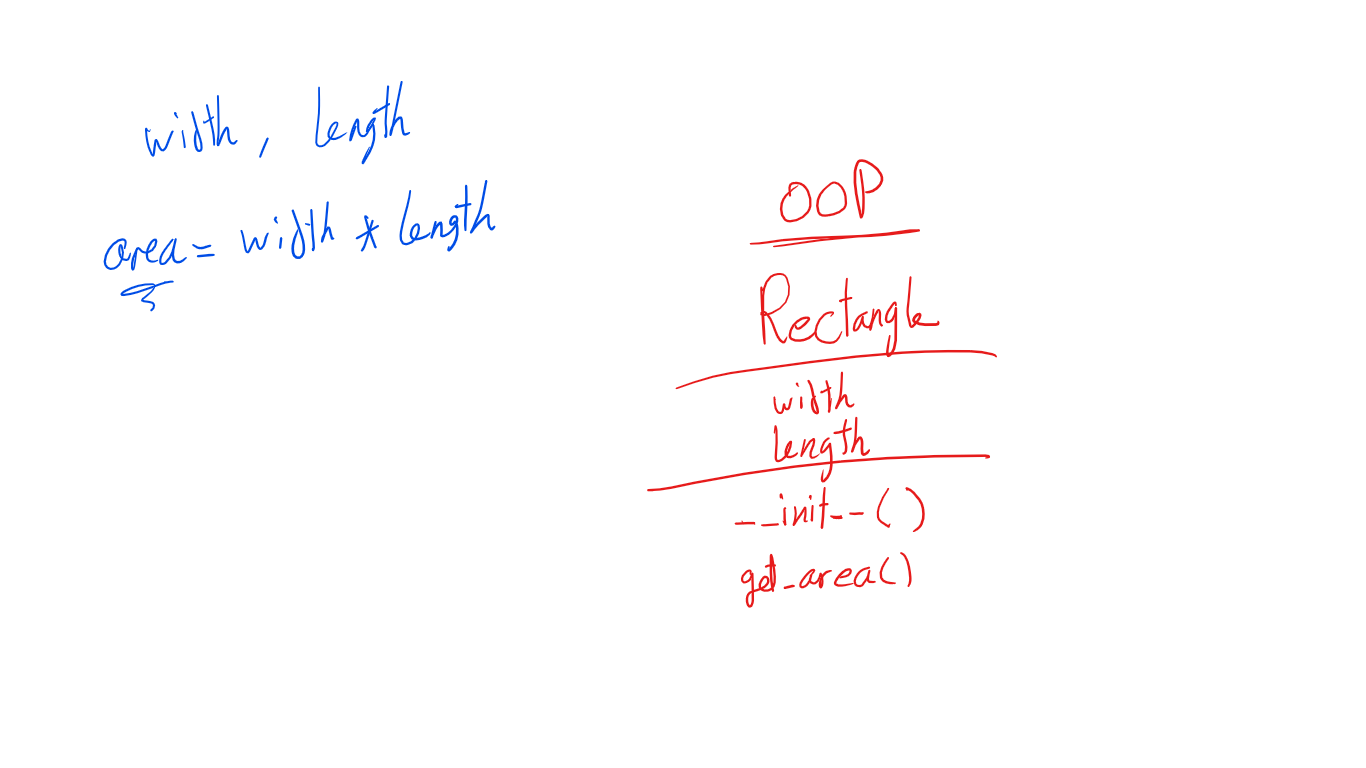 width, length
area = width * length
OOP
Rectangle
width
length
__init__()
get_area()